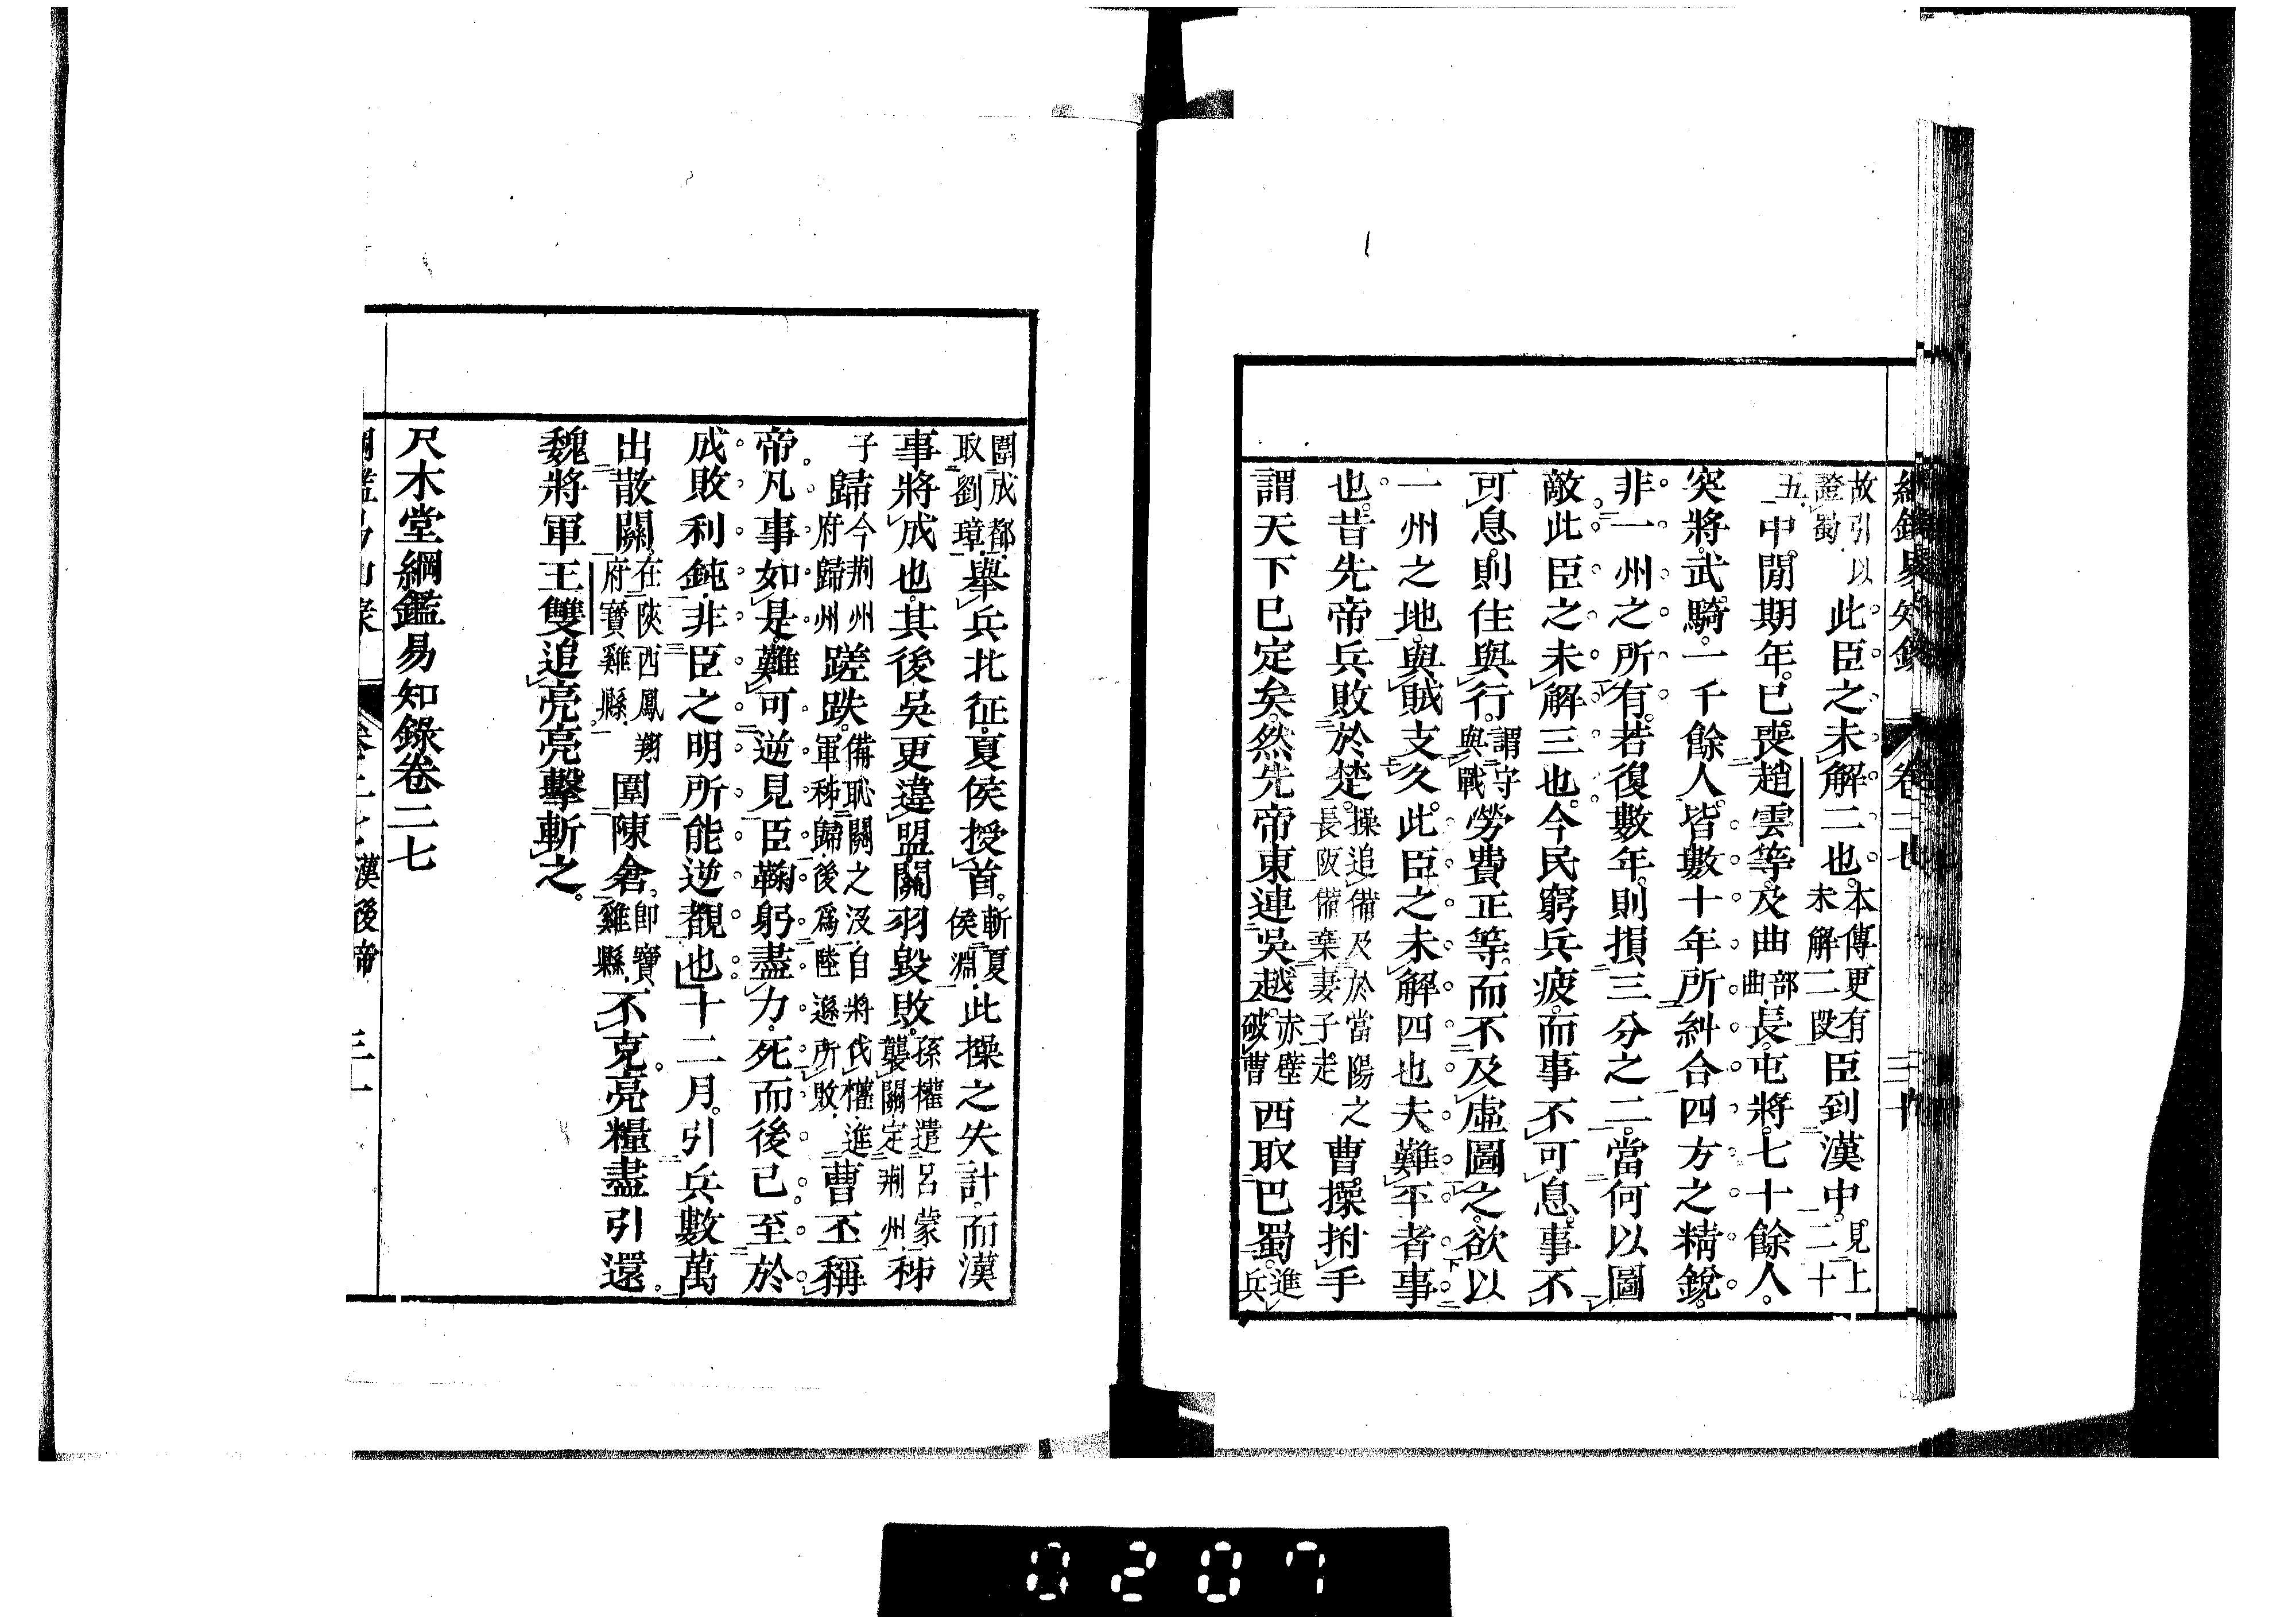 故引以證蜀此臣之未解二也。本傳更有未解二段臣到漢中。見上二十
五中閒期年。已喪趙雲等。及曲部曲長。屯將。七十餘人。
突將。武騎。一千餘人。皆數十年所糾合四方之精銳。
非一州之所有。若復數年。則損三分之二。當何以圖
敵此臣之未解三也。今民窮兵疲。而事不可息。事不
可息。則住與行。謂守與戰勞費正等。而不及虛圖之。欲以
一州之地。與賊支久。此臣之未解四也夫難平者事
也。昔先帝兵敗於楚。操追備及於當陽之長阪備棄妻子走。曹操拊手
謂天下已定矣。然先帝東連吳越。赤壁破曹西取巴蜀。進兵
圍成都。取劉璋。舉兵北征。夏侯授首。斬夏侯淵。此操之失計。而漢
事將成也。其後吳更違盟關羽毀敗。孫權遣呂蒙襲關定荆州。秭
子歸今荆州府歸州蹉跌。備恥關之沒自將伐權。進軍秭歸。後爲陸遜所敗。曹丕稱
帝。凡事如是。難可逆見。臣鞠躬盡力。死而後已。至於
成敗利鈍。非臣之明所能逆覩也。十二月。引兵數萬
出散關。在陝西鳳翔府寶雞縣。圍陳倉。卽寶雞縣。不克。亮糧盡引還。
魏將軍王雙追亮。亮擊斬之。
尺木堂綱鑑易知錄卷二七
漢後帝